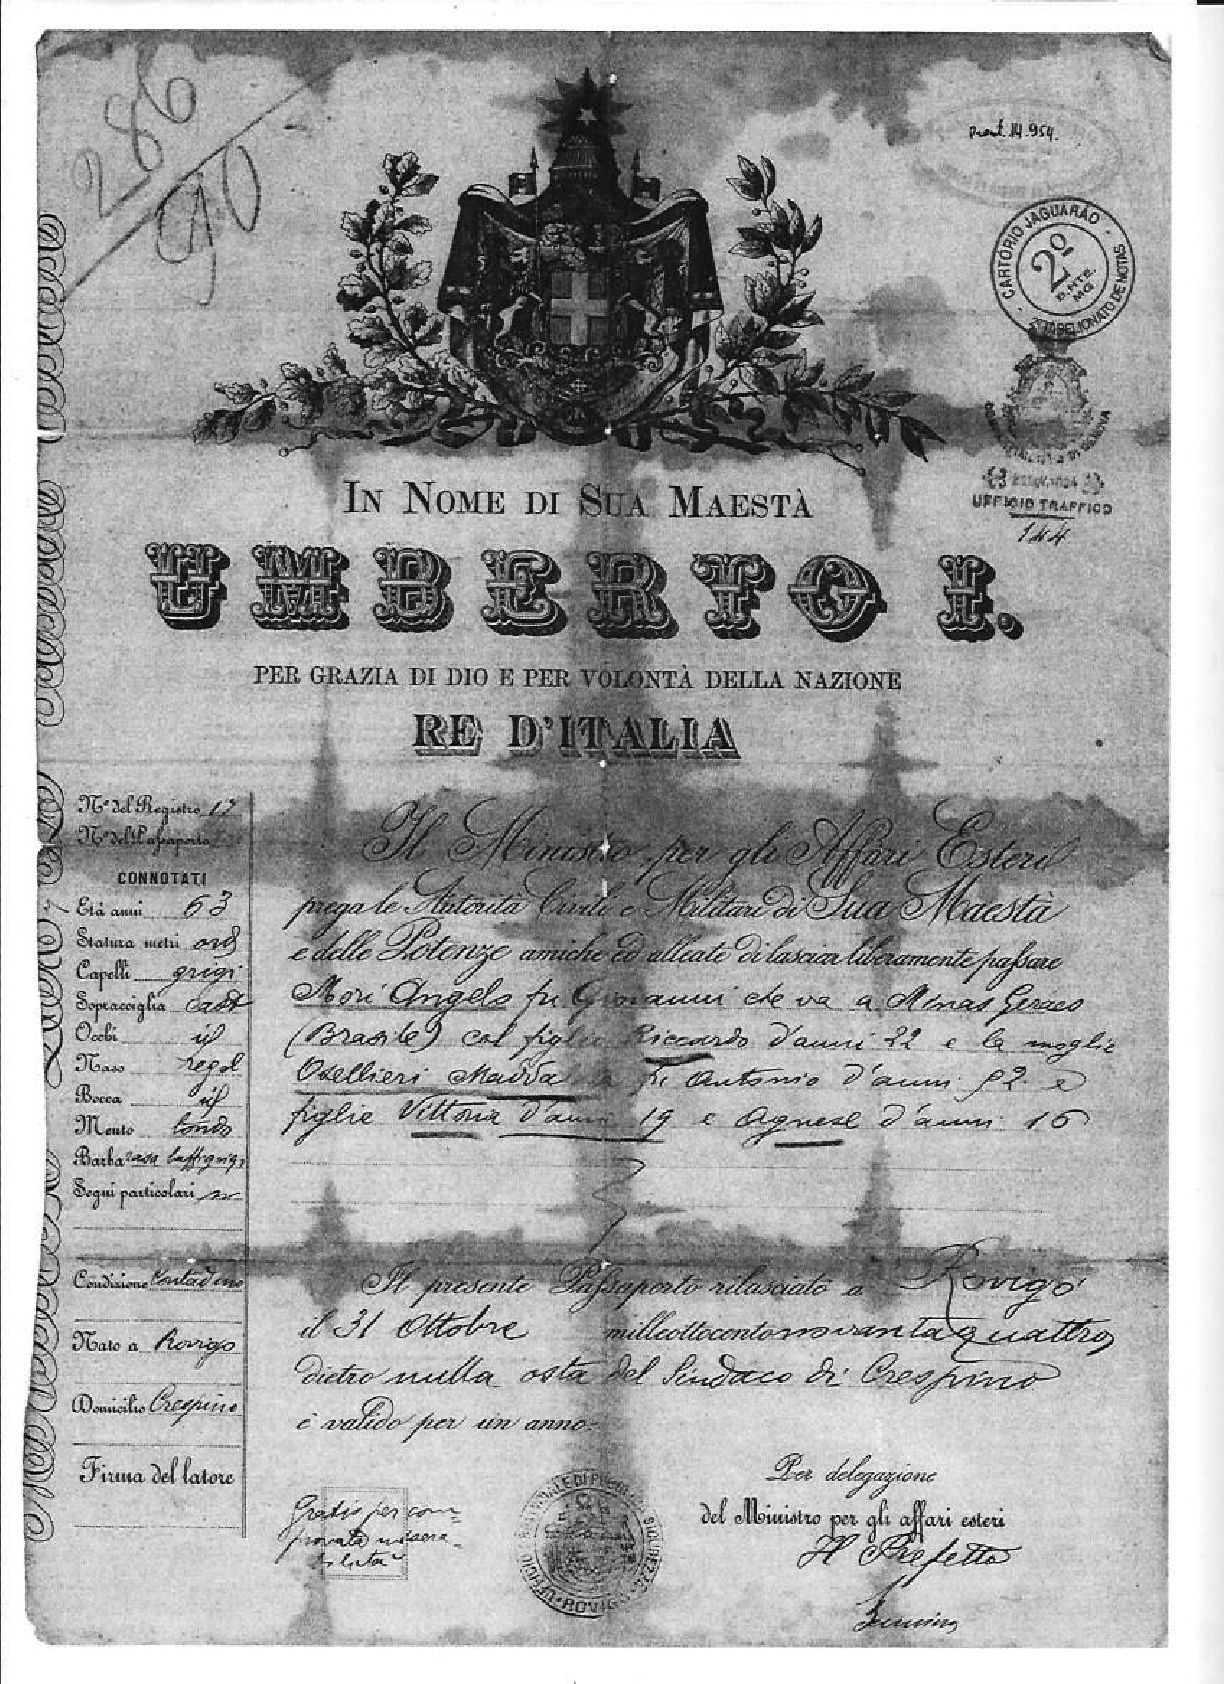 286
90
Prot. 14.954.
CARTÓRIO JAGUARÃO
2º
B.HTE.
MG
IN NOME DI SUA MAESTÀ
UMBERTO I.
PER GRAZIA DI DIO E PER VOLONTÀ DELLA NAZIONE
RE D'ITALIA
UFFICIO TRAFFICO
144
Nº del Registro 17
Nº del Passaporto
CONNOTATI
Età anni 63
Statura metri ord
Capelli grigi
Sopracciglia cast
Occhi id
Naso regol
Bocca id
Mento tondo
Barba rasa baffi grigi
Segni particolari
Condizione Contadino
Nato a Rovigo
Domicilio Crespino
Firma del latore
Il Ministro per gli Affari Esteri
prega le Autorità Civili e Militari di Sua Maestà
e delle Potenze amiche ed alleate di lasciar liberamente passare
Mori Angelo fu Giovanni che va a Minas Geraes
(Brasile) col figlio Riccardo d'anni 22 e la moglie
Osellieri fu Antonio d'anni 52 e
figlie Vittoria d'anni 19 e Agnese d'anni 16
Il presente Passaporto rilasciato a Rovigo
il 31 Ottobre milleottocentonovantaquattro
dietro nulla osta del Sindaco di Crespino
è valido per un anno.
Per delegazione
del Ministro per gli affari esteri
Il Prefetto
Gratis per com-
provata misera-
bilità
ROVIGO